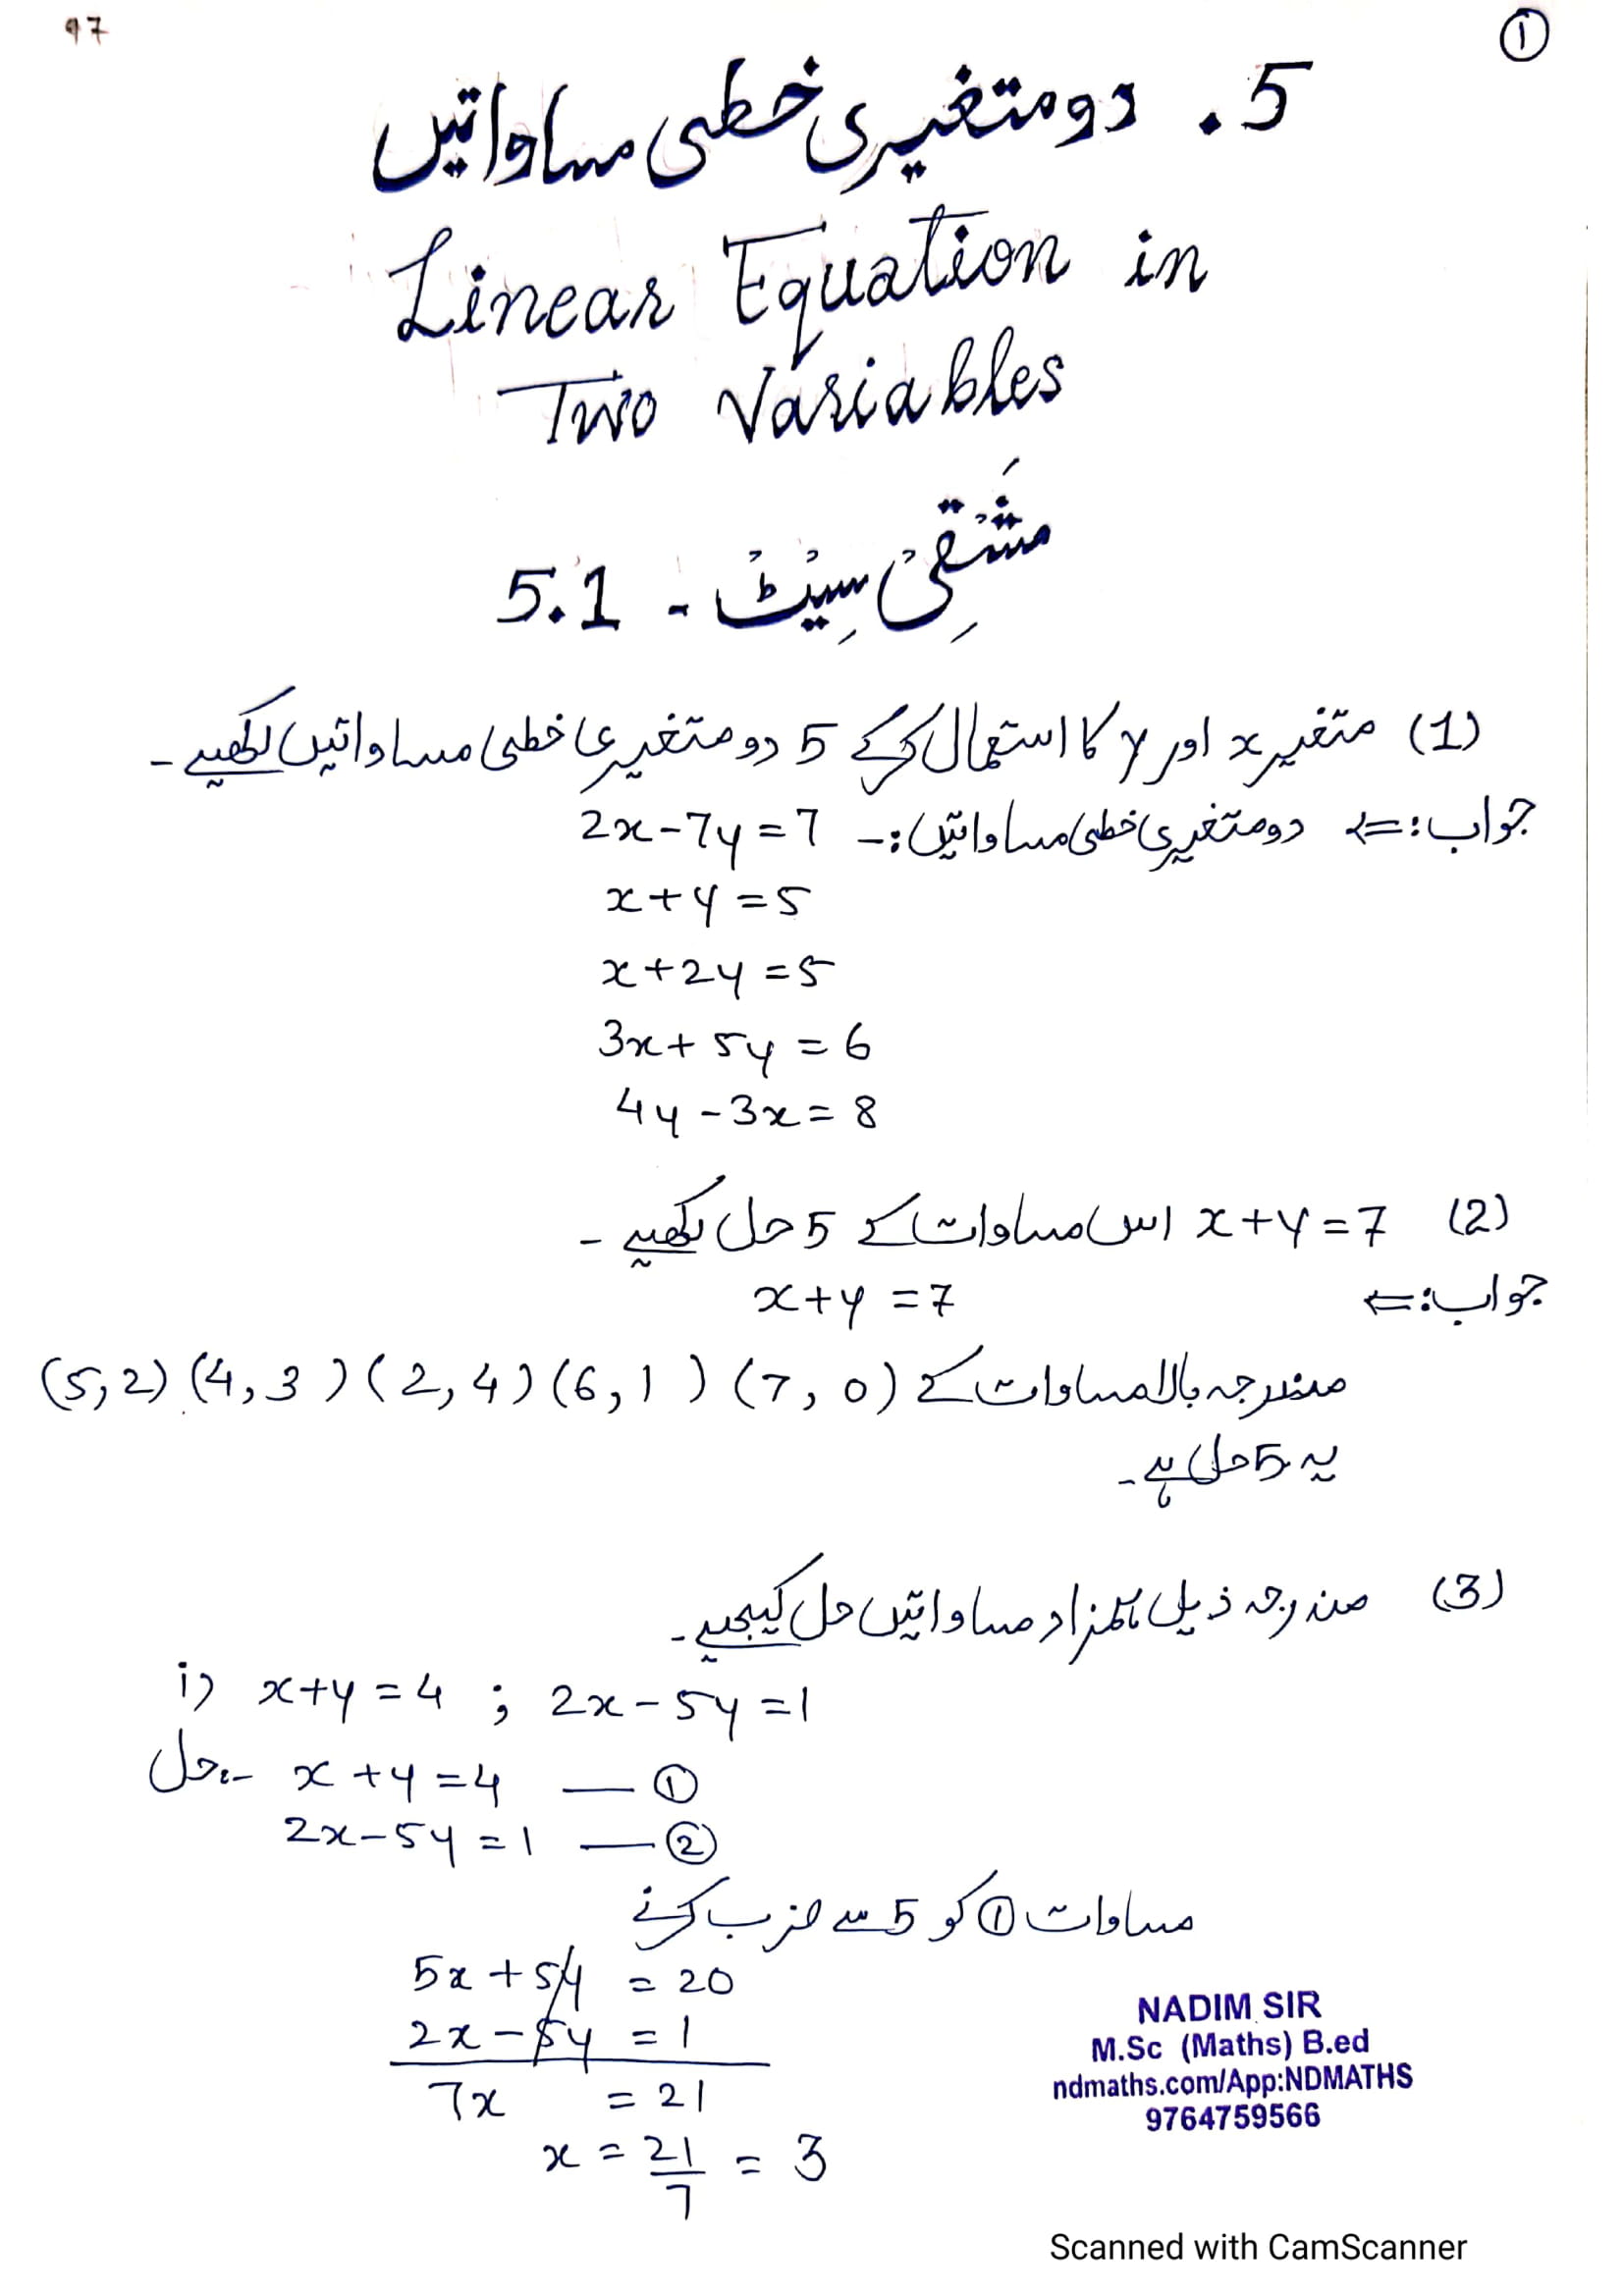 97
①
5. دو متغیری خطی مساواتیں
Linear Equation in
Two Variables
مَشْقِیْ سِیْٹْ - 5.1
(1) متغیر x اور y کا استعمال کرکے 5 دو متغیری خطی مساواتیں لکھیے -
جواب:⇐ دو متغیری خطی مساواتیں:- 2x-7y=7
x+y=5
x+2y=5
3x+5y=6
4y-3x=8
(2) x+y=7 اس مساوات کے 5 حل لکھیے -
جواب:⇐ x+y=7
مندرجہ بالا مساوات کے (7,0) (6,1) (2,4) (4,3) (5,2)
یہ 5 حل ہے-
(3) مندرجہ ذیل ہمزاد مساواتیں حل کیجیے-
i) x+y=4 ; 2x-5y=1
حل:- x+y=4 — ①
2x-5y=1 — ②
مساوات ① کو 5 سے ضرب کرنے
5x+5y = 20
2x-5y = 1
7x = 21
x = 21/7 = 3
NADIM SIR
M.Sc (Maths) B.ed
ndmaths.com/App:NDMATHS
9764759566
Scanned with CamScanner